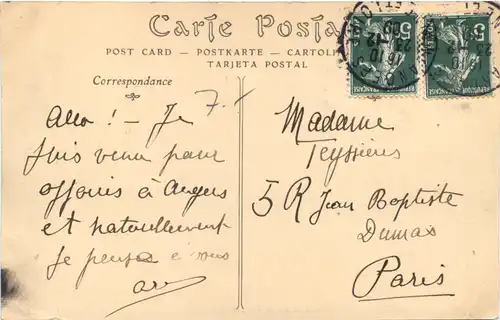 Carte Postale
POST CARD — POSTKARTE — CARTOLINA
TARJETA POSTAL
Correspondance
Allo ! — Je
suis venu pour
affaires à Angers
et naturellement
je pense à vous
7.
Madame
Teyssières
5 R Jean Baptiste
Dumas
Paris
5
REPUBLIQUE FRANÇAISE
5
REPUBLIQUE FRANÇAISE